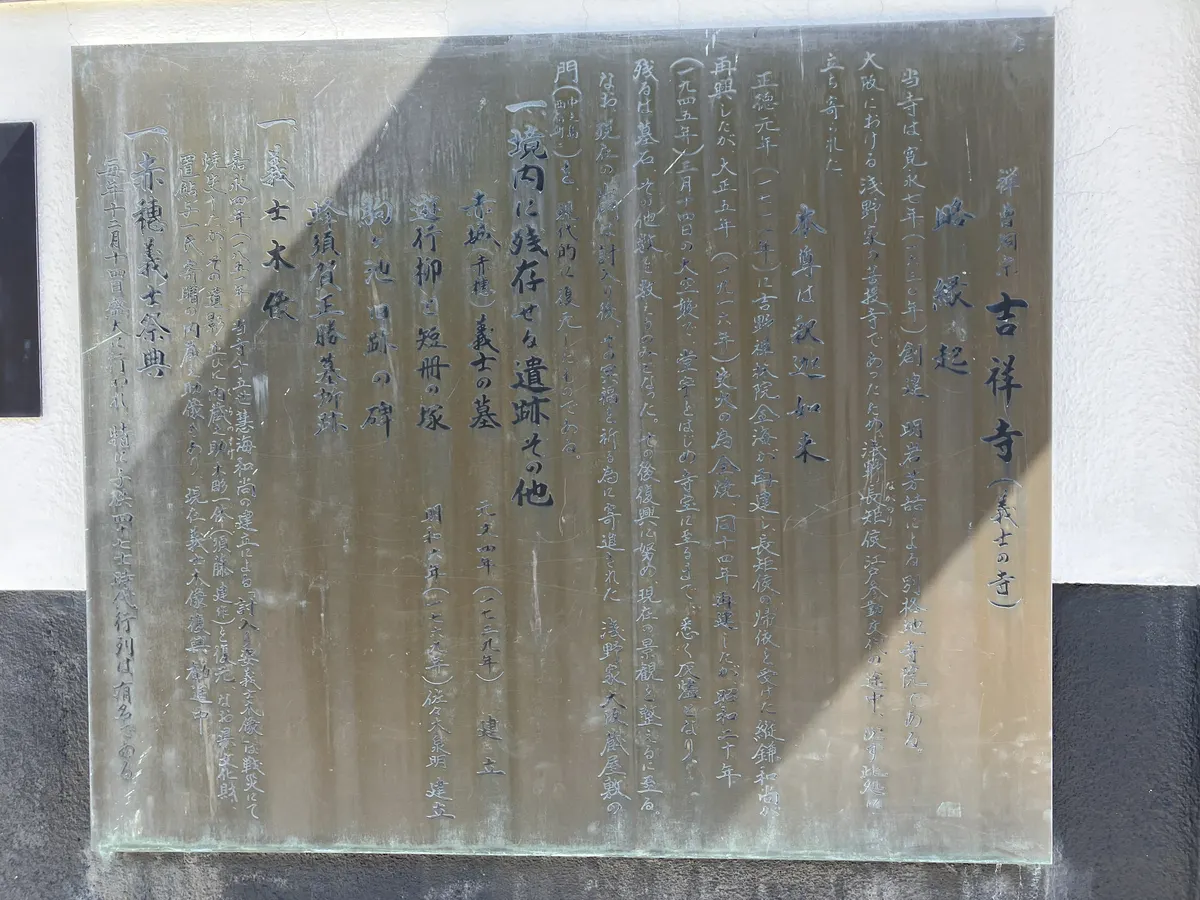 吉祥寺(義士の寺)
略縁起
当寺は寛永七年(一六三〇年)創建 による別格地寺院である
大阪における浅野家の菩提寺であったため 長矩侯 江戸参勤交代の途中、必ず此処に
立ち寄られた
本尊は釈迦如来
正徳元年(一七一一年)に吉野雄 院金海が再建し長矩侯の帰依を受けた縦鎌和尚が
再興したが大正五年(一九一六年)失火の為全焼、同十四年再建したが昭和二十年
(一九四五年)三月十四日の大空襲で、堂宇をはじめ寺宝に至るまで、悉く灰燼となり
残るは墓石その他数 数うのみとなった。その後復興に努め、現在の景観を整えるに至る。
なお現在の 討入り後、その冥福を祈る為に寄進された 浅野家大阪蔵屋敷の
門 を、現代的に復元したものである。
一境内に残存せる遺跡その他
赤城 義士の墓 元文四年(一七三九年) 建立
遊行柳と短冊の塚 明和六年(一七六九年)佐々木泉明 建立
駒ヶ池旧跡の碑
蜂須賀正勝墓所跡
一義士木像
嘉永四年(一八五一年)当寺十五世慧海和尚の建立による「討入り姿義士木像」は戦災にて
焼失したが、その遺影 内蔵之助木彫一体 を復元、なお 文化財
一氏寄贈の内 あり、現在義士木像復興勧進中
一赤穂義士祭典
毎年十二月十四日盛大に行われ、特に子供四十七士時代行列は有名である。